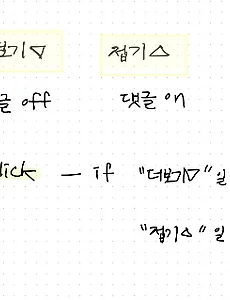 보기▽ 접기△
글 off 댓글 on
lick — if "더보기▽" 일
"접기△" 일